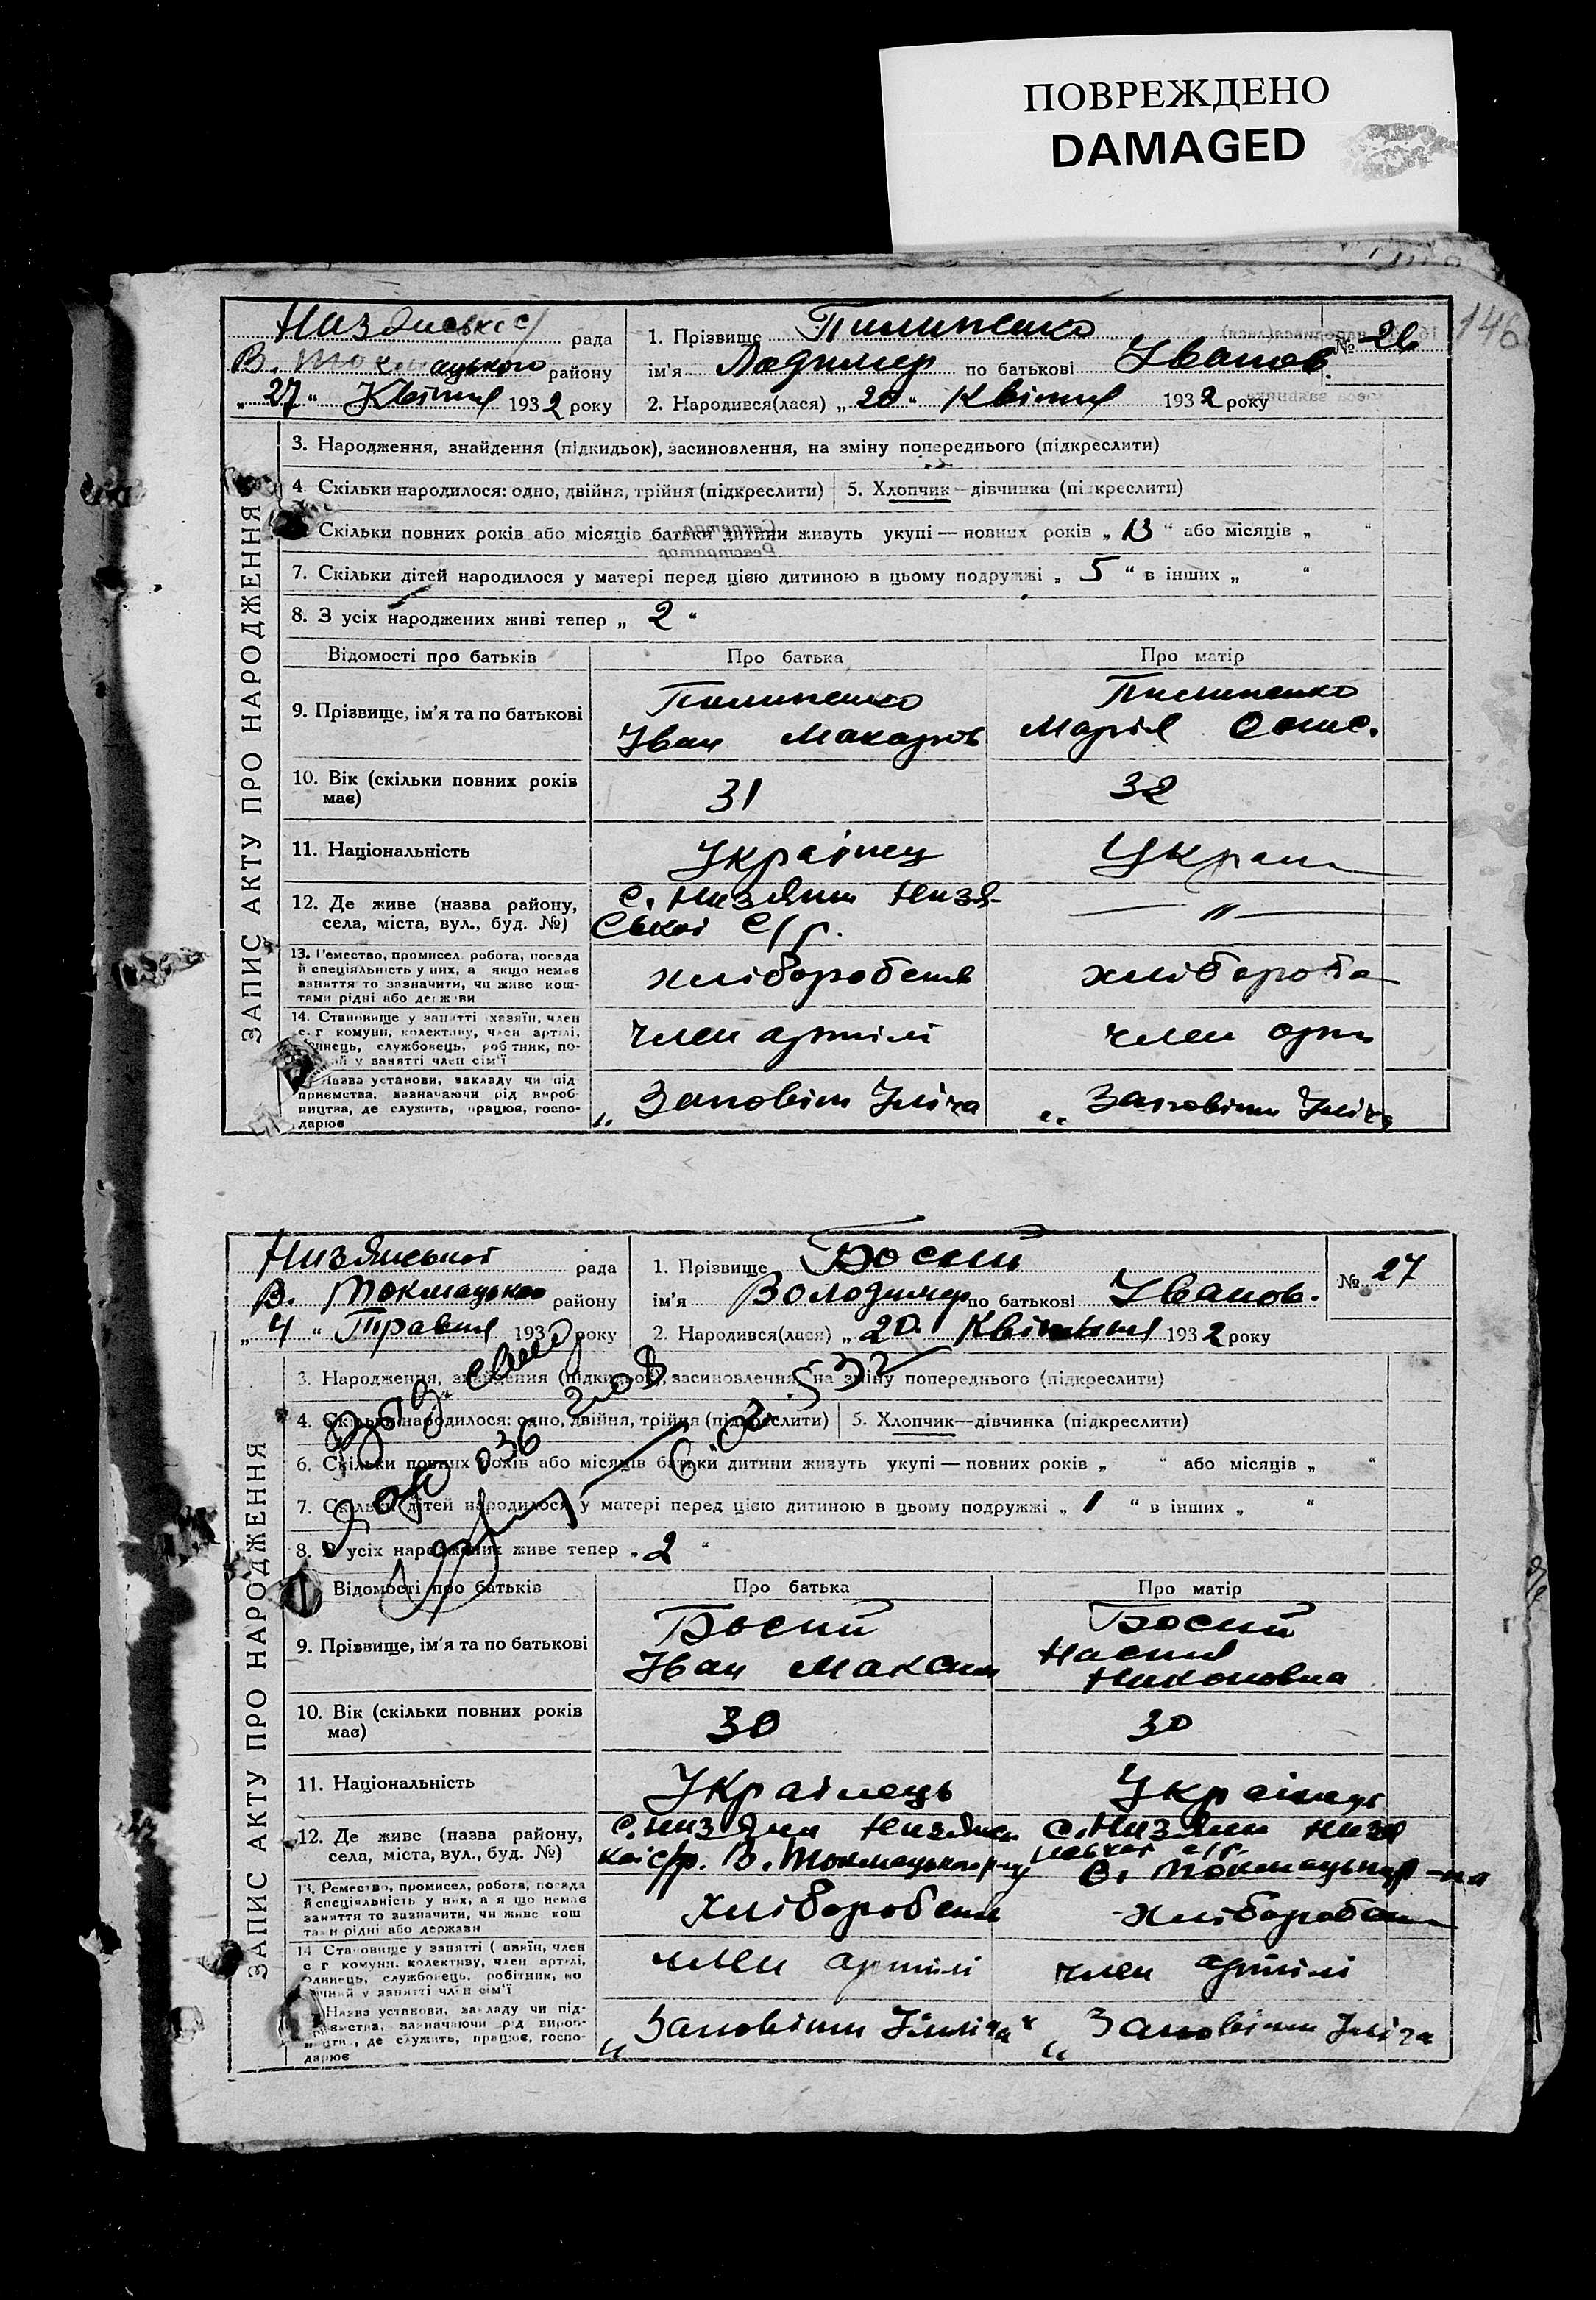 ПОВРЕЖДЕНО
DAMAGED
146
ЗАПИС АКТУ ПРО НАРОДЖЕННЯ
рада
В. Токмацького району
„ 27 “ Квітня 1932 року
1. Прізвище Пилипенко
№ 26
ім'я Лодимер по батькові Іванов.
2. Народився(лася) „ 20 “ Квітня 1932 року
3. Народження, знайдення (підкидьок), засиновлення, на зміну попереднього (підкреслити)
4. Скільки народилося: одно, двійня, трійня (підкреслити) 5. Хлопчик—дівчинка (підкреслити)
Скільки повних років або місяців батьки дитини живуть укупі — повних років „ 13 “ або місяців „ “
7. Скільки дітей народилося у матері перед цією дитиною в цьому подружжі „ 5 “ в інших „ “
8. З усіх народжених живі тепер „ 2 “
Відомості про батьків Про батька Про матір
9. Прізвище, ім'я та по батькові
Пилипенко Пилипенко
Іван Макаров Марія
10. Вік (скільки повних років має)
31 32
11. Національність
Українец Украін
12. Де живе (назва району, села, міста, вул., буд. №)
с. Низяни Низя-
ської с/р. — " —
13. Ремество, промисел, робота, посада
й спеціяльність у них, а якщо немає
заняття то зазначити, чи живе кош-
тами рідні або держави
хлібороб хлібороба
14. Становище у занятті хазяїн, член
с. г комуни, колективу, член артілі,
службовець, робітник, по-
у занятті член сім'ї
член артілі член арті
Назва установи, закладу чи під
приємства, зазначаючи рід вироб
ництва, де служить, працює, госпо-
дарює
„ Заповіт Ілліча „ Заповіт Ілліча
ЗАПИС АКТУ ПРО НАРОДЖЕННЯ
Низянської рада
В. Токмацького району
„ 4 “ Травня 1932 року
1. Прізвище Босий
№ 27
ім'я Володимир по батькові Іванов.
2. Народився(лася) „ 20 Квітня 1932 року
3. Народження, знайдення (підкидьок), засиновлення, на зміну попереднього (підкреслити)
4. Скільки народилося: одно, двійня, трійня (підкреслити) 5. Хлопчик—дівчинка (підкреслити)
6. Скільки повних років або місяців батьки дитини живуть укупі — повних років „ “ або місяців „ “
7. Скільки дітей народилося у матері перед цією дитиною в цьому подружжі „ 1 “ в інших „ “
8. З усіх народжених живе тепер „ 2 “
Відомості про батьків Про батька Про матір
9. Прізвище, ім'я та по батькові
Босий Босий
Іван Максим Настя
Никоновна
10. Вік (скільки повних років має)
30 30
11. Національність
Українець Українець
12. Де живе (назва району, села, міста, вул., буд. №)
с. Низяни Низянсь с. Низяни Низя
кої с/р. В. Токмацького р-ну нської с/р.
В. Токмацьк р-на
13. Ремество, промисел, робота, посада
й спеціяльність у них, а якщо немає
заняття то зазначити, чи живе кош
тами рідні або держави
Хлібороб хлібороб
14 Становище у занятті (хазяїн, член
с г комуни, колективу, член артілі,
одинець, службовець, робітник, по
у занятті член сім'ї
член артілі член артілі
Назва установи, закладу чи під-
приємства, зазначаючи рід вироб-
, де служить, працює, госпо-
дарює
„ Заповіт Ілліча “ „ Заповіт Ілліча